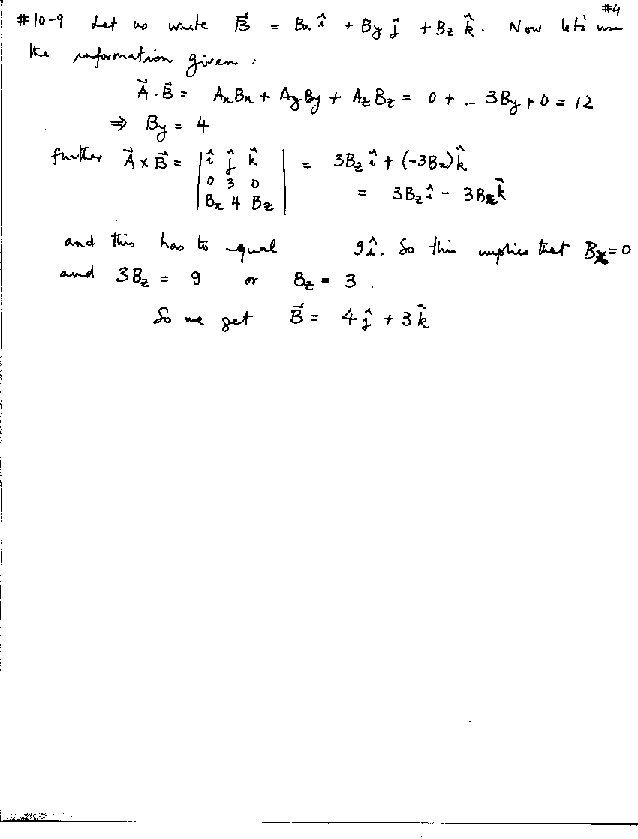 #4
#10-9 Let us write B⃗ = Bx î + By ĵ + Bz k̂. Now let's use
the information given:
A⃗·B⃗ = AxBx + AyBy + AzBz = 0 + 3By + 0 = 12
⇒ By = 4
further A⃗ × B⃗ = | î ĵ k̂ | = 3Bz î + (-3Bx) k̂
0 3 0
Bx 4 Bz = 3Bz î - 3Bx k̂
and this has to equal 9î. So this implies that Bx = 0
and 3Bz = 9 or Bz = 3.
So we get B⃗ = 4ĵ + 3k̂